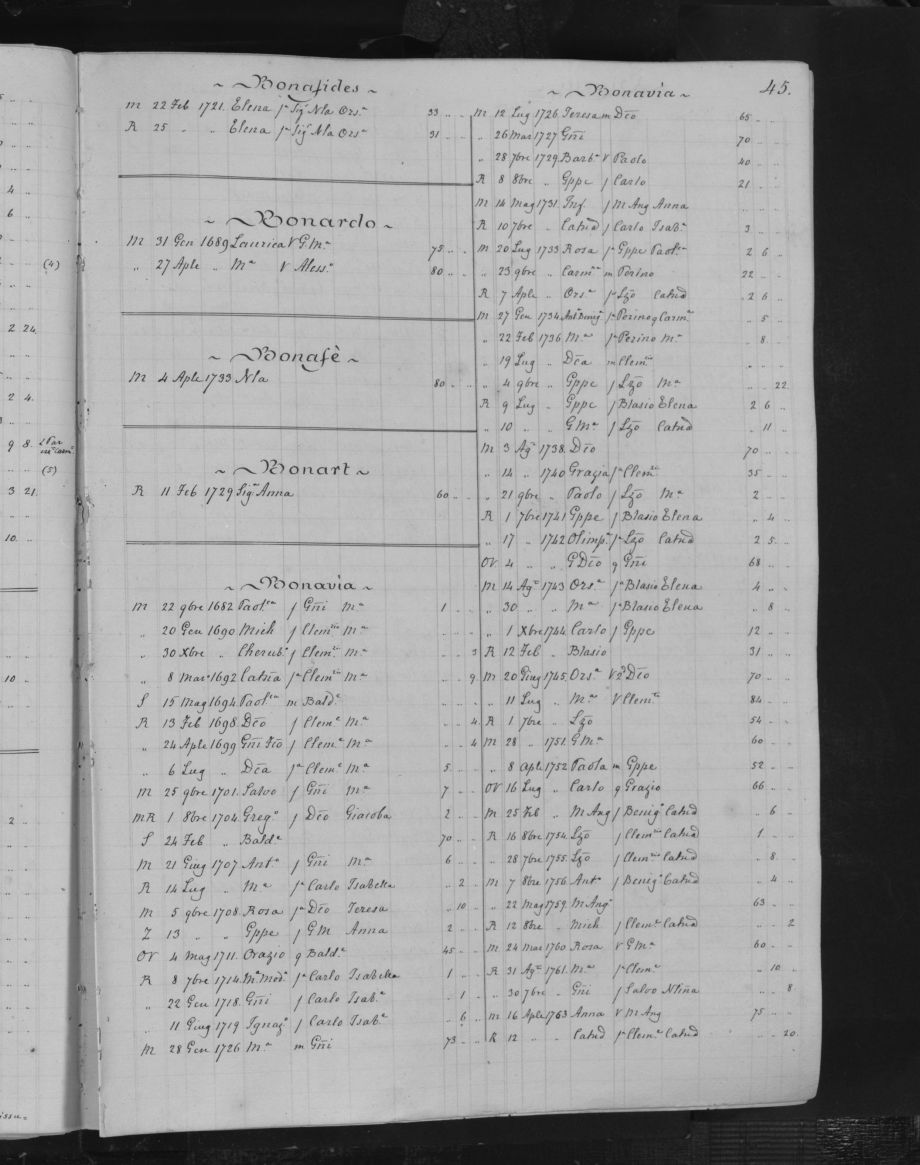 45.
~ Bonafides ~
M 22 Feb 1721. Elena fa Sigr Nla Orsa 33 .. ..
R 25 " " Elena fa Sigr Nla Orsa 31 .. ..
~ Bonardo ~
M 31 Gen 1689 Laurica V G.Ma 75 .. ..
" 27 Aple " Ma V Alesso 80 .. ..
~ Bonafè ~
M 4 Aple 1733 Nla 80 .. ..
~ Bonart ~
R 11 Feb 1729 Sigra Anna 60 .. ..
~ Bonavia ~
M 22 9bre 1682 Paolca f Gñi Ma 1 .. ..
" 20 Gen 1690 Mich f Clemte Ma .. .. ..
" 30 Xbre " Cherubo f Clemte Ma .. .. 3
" 8 Mar 1692 Catna fa Clemte Ma .. .. 9
S 15 Mag 1694 Paolca m Balde
R 13 Feb 1698 Dco f Cleme Ma .. .. 4
" 24 Aple 1699 Gñi Fco f Cleme Ma .. .. 4
" 6 Lug " Dca fa Cleme Ma 5 .. ..
M 25 9bre 1701. Salvo f Gñi Ma 7 .. ..
MR 1 8bre 1704. Grego f Dco Giacoba 2 .. ..
S 24 Feb " Balde 70 .. ..
M 21 Giug 1707 Anto f Gñi Ma 6 .. ..
R 14 Lug " Ma fa Carlo Isabella .. 2 ..
M 5 9bre 1708. Rosa fa Dco Teresa .. 10 ..
Z 13 " " Gppe f G M Anna 2 .. ..
OV 4 Mag 1711. Orazio q Balde 45 .. ..
R 8 7bre 1714. Ma Moda fa Carlo Isabella 1 .. ..
" 22 Gen 1718. Gñi f Carlo Isaba .. 1 ..
" 11 Giug 1719 Ignazo f Carlo Isaba .. 6 ..
M 28 Gen 1726 Ma m Gñi 73 .. ..
~ Bonavia ~
M 12 Lug 1726. Teresa m Dco 65 .. ..
" 26 Mar 1727 Gñi 70 .. ..
" 28 7bre 1729. Barba V Paolo 40 .. ..
R 8 8bre " Gppe f Carlo 21 .. ..
M 14 Mag 1731. Inf f M Ang Anna .. .. ..
R 10 7bre " Catnd f Carlo Isaba 3 .. ..
M 20 Lug 1733 Rosa fa Gppe Paolca 2 6 ..
" 23 9bre " Carmna m Perino 22 .. ..
R 7 Aple " Orsa fa Lzo Catnd 2 6 ..
M 27 Gen 1734. Anta Beniga fa Perino q Carma .. 5 ..
" 22 Feb 1736. Ma fa Perino Ma .. 8 ..
" 19 Lug " Dca m Clemte .. .. ..
" 4 9bre " Gppe f Lzo Ma .. .. 22
R 9 Lug " Gppe f Blasio Elena 2 6 ..
" 10 " " G Ma f Lzo Catnd .. 11 ..
M 3 Ago 1738. Dco 70 .. ..
" 14 " 1740 Grazia fa Clemte 35 .. ..
" 21 9bre " Paolo f Lzo Ma 2 .. ..
R 1 7bre 1741 Gppe f Blasio Elena .. 4 ..
" 17 " 1742 Olimpa fa Lzo Catnd 2 5 ..
OV 4 " " G Dco q Gñi 68 .. ..
M 14 Ago 1743 Orsa fa Blasio Elena 4 .. ..
" 30 " " Ma fa Blasio Elena .. 8 ..
" 1 Xbre 1744. Carlo f Gppe 12 .. ..
R 12 Feb " Blasio 31 .. ..
M 20 Giug 1745. Orsa V 2o Dco 70 .. ..
" 11 Lug " Ma V Clemte 84 .. ..
R 1 7bre " Lzo 54 .. ..
M 28 " 1751. G Ma 60 .. ..
" 8 Aple 1752 Paola m Gppe 52 .. ..
OV 16 Lug " Carlo q Grazio 66 .. ..
M 25 Feb " M Ang f Benigo Catnd .. 6 ..
R 16 8bre 1754. Lzo f Clemte Catnd 1 .. ..
" 28 7bre 1755. Lzo f Clemte Catnd .. 8 ..
M 7 8bre 1756. Anto f Benigo Catnd .. 4 ..
" 22 Mag 1759. M Ango 63 .. ..
R 12 8bre " Mich f Cleme Catnd .. .. 2
M 24 Mar 1760 Rosa V G Ma 60 .. ..
R 31 Ago 1761. Ma fa Cleme .. 10 ..
" 30 7bre " Gñi f Salvo Ntiña .. .. 8
M 16 Aple 1763 Anna V M Ang 75 .. ..
R 12 " " Catnd fa Cleme Catnd .. .. 20